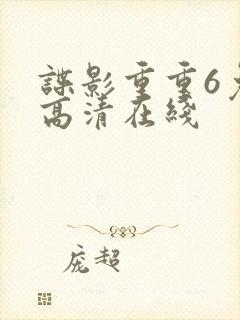 諜影重重6
高清在綫
庞超